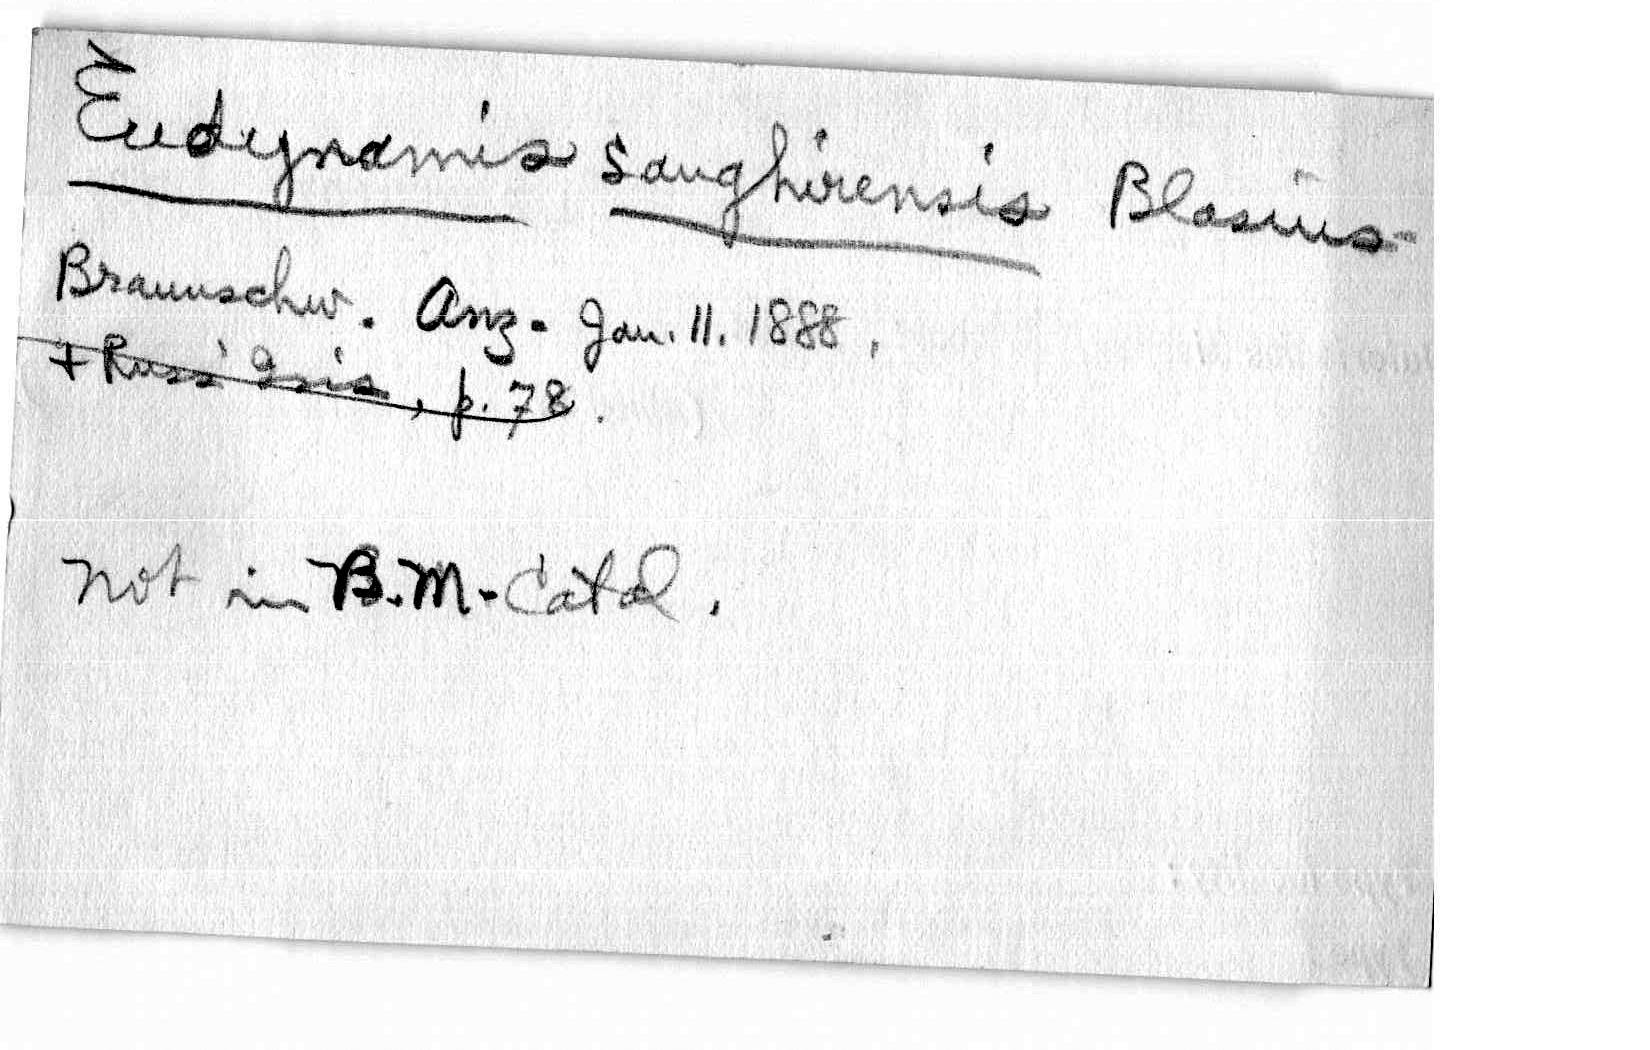 Eudynamis sanghirensis Blasius
Braunschw. Anz. Jan. 11. 1888,
+ Russ' Isis, p. 78.
Not in B.M. Catal.